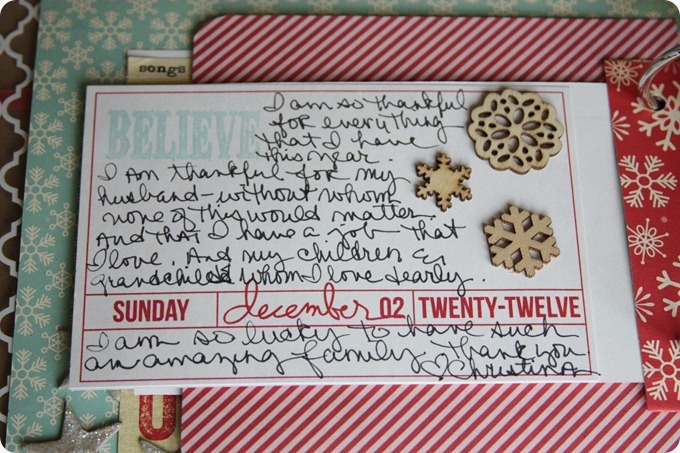 songs
BELIEVE
I am so thankful
for everything
that I have
this year.
I am thankful for my
husband - without whom
none of this would matter.
And that I have a job that
I love. And my children &
grandchild whom I love dearly.
SUNDAY december 02 TWENTY-TWELVE
I am so lucky to have such
an amazing family. Thank you
♡Christina